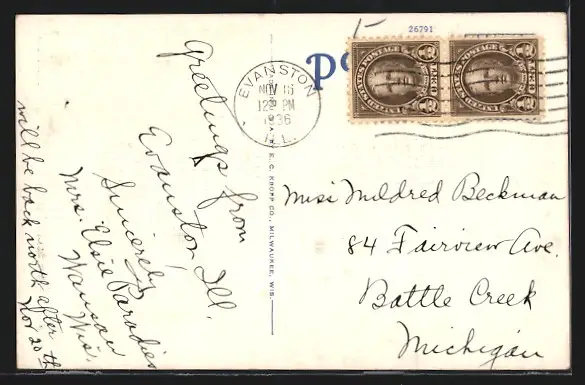 26791
PO
EVANSTON
NOV 16
12 PM
1936
ILL.
UNITED STATES POSTAGE
Greetings from
Evanston, Ill.
Sincerely
Mrs. Elsie Paradies
Wausau
Wis.
will be back north after the
Nov 20th
E. C. KROPP CO., MILWAUKEE, WIS.
Miss Mildred Beckman
84 Fairview Ave.
Battle Creek
Michigan